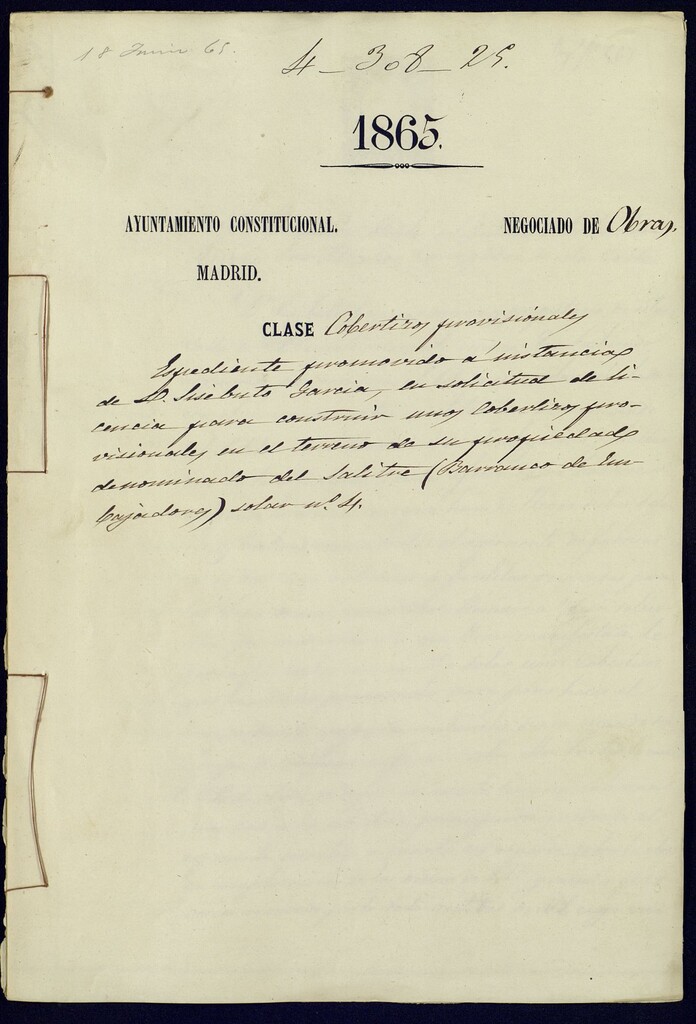 18 Junio 65.
4-308-25.
1865.
AYUNTAMIENTO CONSTITUCIONAL. NEGOCIADO DE Obras.
MADRID.
CLASE Cobertizos provisionales
Espediente promovido a instancia
de D. Sisebuto Garcia, en solicitud de li-
cencia para construir unos Cobertizos pro-
visionales en el terreno de su propiedad
denominado del Salitre (Barranco de Em
bajadores) solar nº 4.